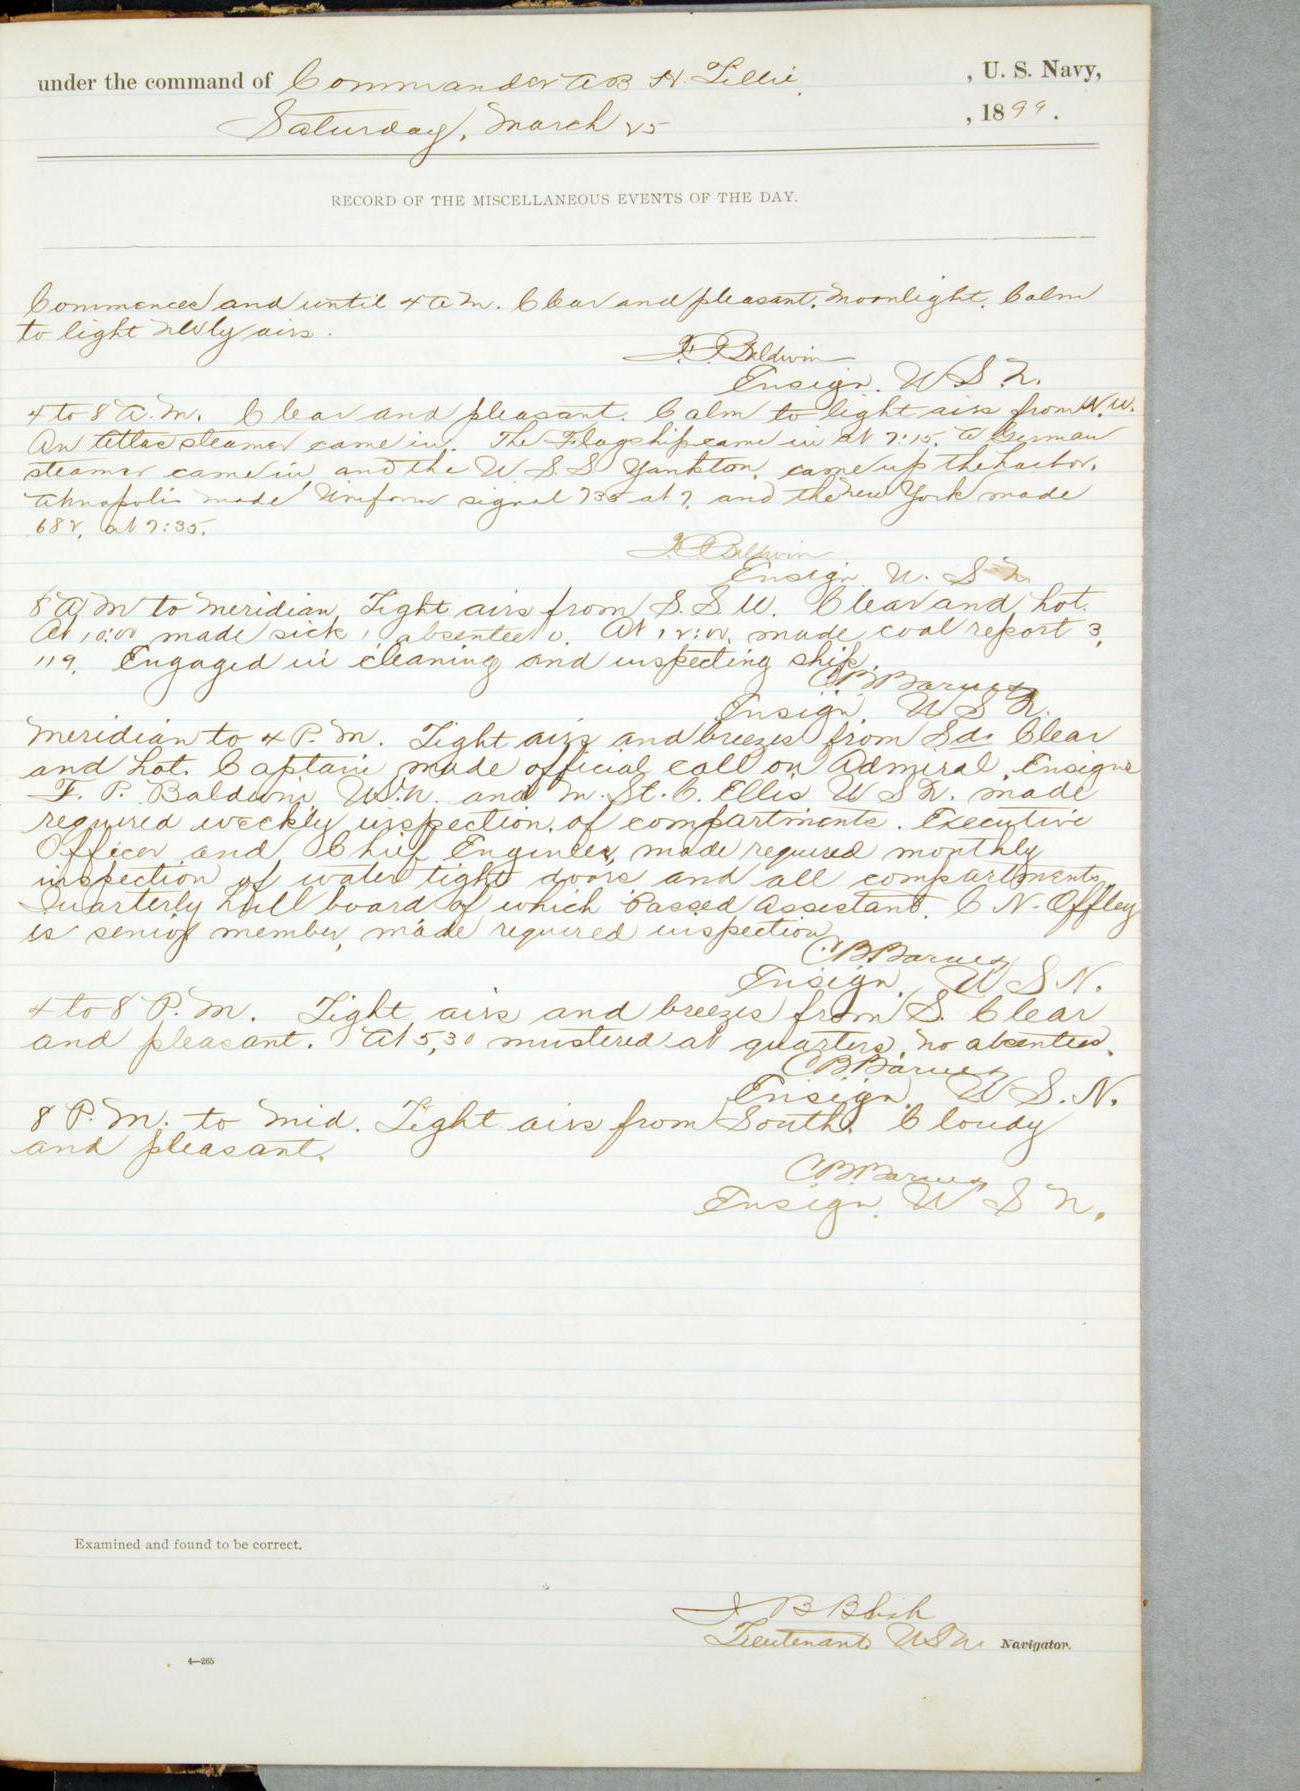 under the command of Commander A B H. Lillie, U. S. Navy,
Saturday, March 25, 1899.
RECORD OF THE MISCELLANEOUS EVENTS OF THE DAY.
Commences and until 4 a m. Clear and pleasant. Moonlight. Calm
to light airs.
F. P. Baldwin
Ensign. U. S. N.
4 to 8 A. M. Clear and pleasant. Calm to light airs from N.W.
An Atlas steamer came in. The Flagship came in at 7:15. A German
steamer came in, and the U S. S. Yankton, came up the harbor.
Annapolis made Uniform signal 735 at 7, and the New York made
682, at 7:35.
F. P. Baldwin
Ensign U. S. N.
8 A M to Meridian, Light airs from S. S. W. Clear and hot.
At 10:00 made sick 1 absentee 0. At 12:00, made coal report 3,
119. Engaged in cleaning and inspecting ship.
C B Barnes
Ensign. U S N.
Meridian to 4 P. M. Light airs and breezes from Sd. Clear
and hot. Captain made official call on Admiral, Ensigns
F. P. Baldwin, U.S.N. and M. St. C. Ellis U S N. made
required weekly inspection of compartments. Executive
Officer and Chief Engineer, made required monthly
inspection of water tight doors and all compartments.
Quarterly hull board of which Passed Assistant. C N. Offley
is senior member, made required inspection
C B Barnes
Ensign, U S N.
4 to 8 P. M. Light airs and breezes from S. Clear
and pleasant. At 5,30 mustered at quarters, no absentees.
C B Barnes
Ensign, U S. N.
8 P. M. to Mid. Light airs from South. Cloudy
and pleasant.
C B Barnes
Ensign. U S N.
Examined and found to be correct.
J B Blish
Lieutenant U S N. Navigator.
4—265